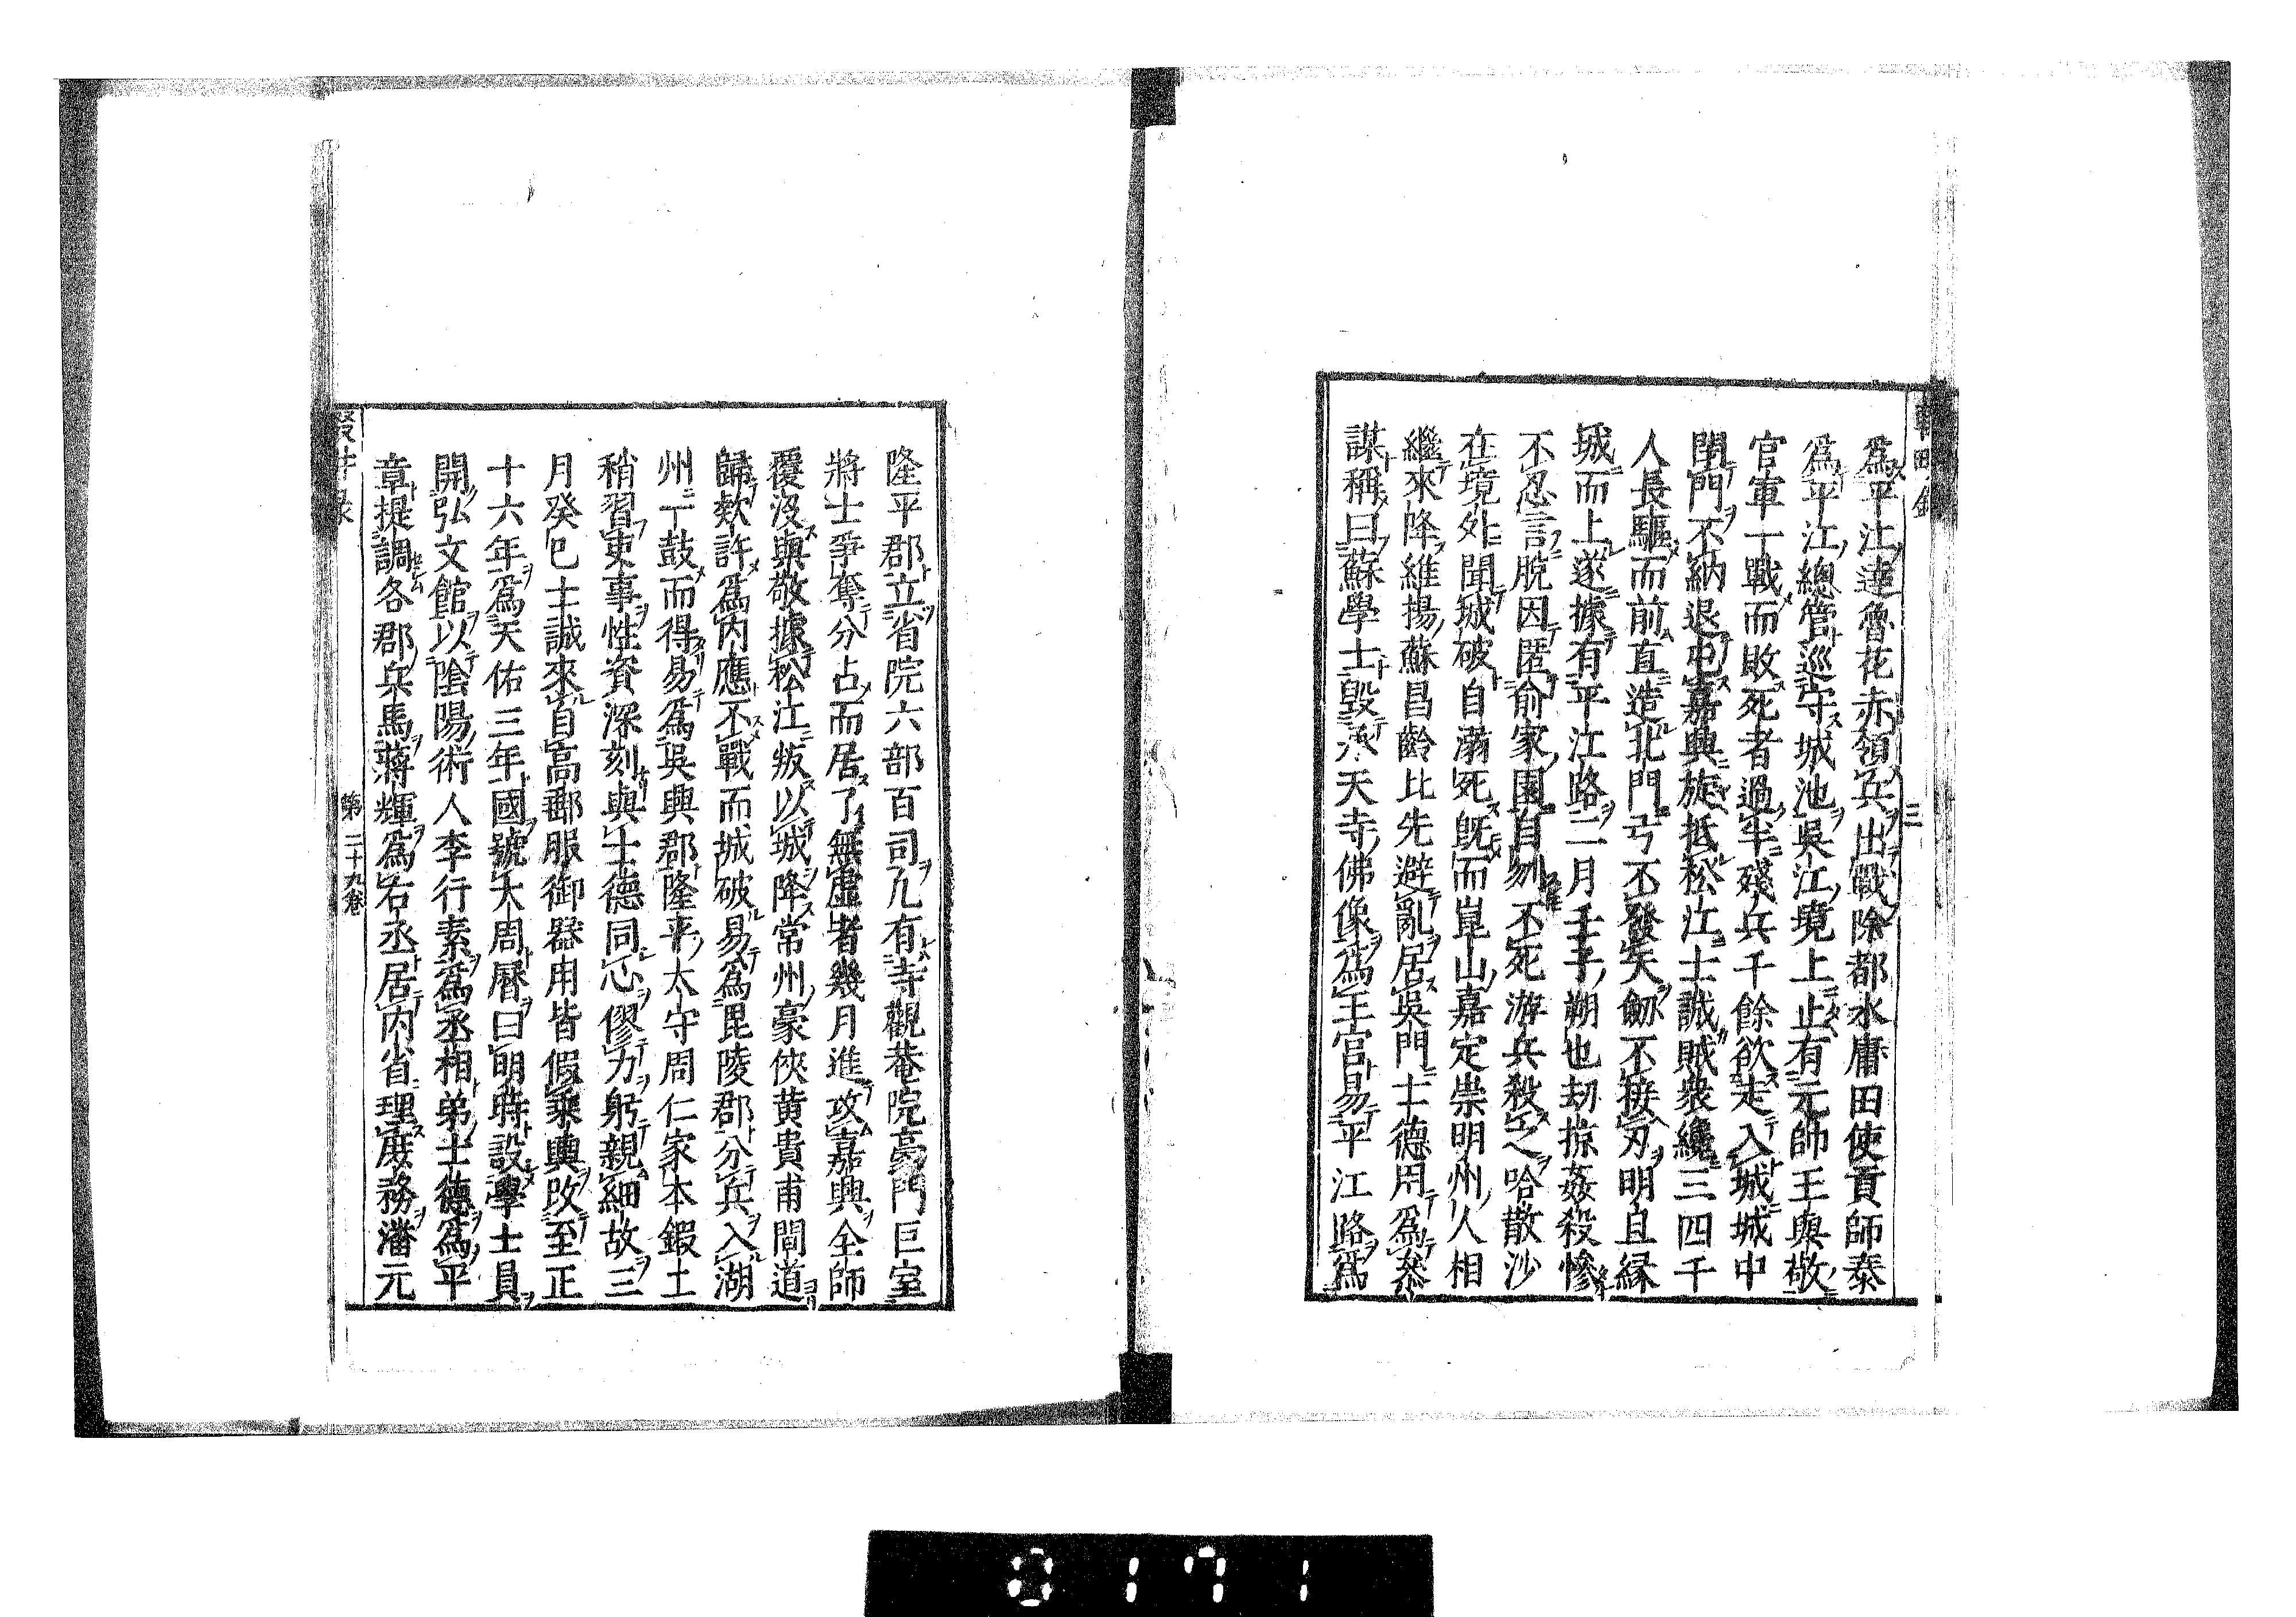 爲平江達魯花赤領兵出戰除都水庸田使貢師泰
爲平江總管巡守城池吳江境上止有元帥王與敬
官軍一戰而敗死者過半殘兵千餘欲走入城城中
閉門不納退屯嘉興旋抵松江士誠賊衆纔三四千
人長驅而前直造北門弓不發矢劒不接刃明旦緣
城而上遂據有平江路二月壬子朔也刼掠姦殺慘
不忍言脫因匿俞家園自刎不死游兵殺之哈散沙
在境外聞城破自溺死旣而崑山嘉定崇明州人相
繼來降維揚蘇昌齡比先避亂居吳門士德用爲叅
謀稱曰蘇學士毀承天寺佛像爲王宮易平江路爲
隆平郡立省院六部百司凡有寺觀菴院豪門巨室
將士爭奪分占而居了無虛者幾月進攻嘉興全師
覆沒與敬據松江叛以城降常州豪俠黃貴甫間道
歸欵許爲內應不戰而城破易爲毘陵郡分兵入湖
州一鼓而得易爲吳興郡隆平太守周仁家本鍜工
稍習吏事性資深刻與士德同心僇力躬親細故三
月癸巳士誠來自高郵服御器用皆假乘輿改至正
十六年爲天佑三年國號大周曆曰明時設學士員
開弘文館以陰陽術人李行素爲丞相弟士德爲平
章提調各郡兵馬蔣輝爲右丞居內省理庶務潘元
第二十九卷
0171